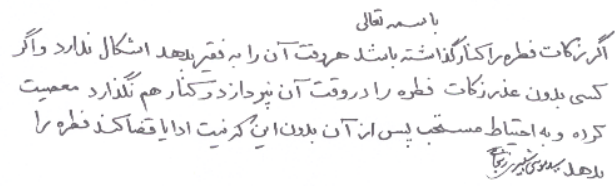 باسمه تعالی
اگر زکات فطره را کنار گذاشته باشد هر وقت آن را به فقیر بدهد اشکال ندارد و اگر
کسی بدون عذر زکات فطره را در وقت آن نپردازد و کنار هم نگذارد معصیت
کرده و به احتیاط مستحب پس از آن بدون این که نیت ادا یا قضا کند فطره را
بدهد سید موسی شبیری زنجانی